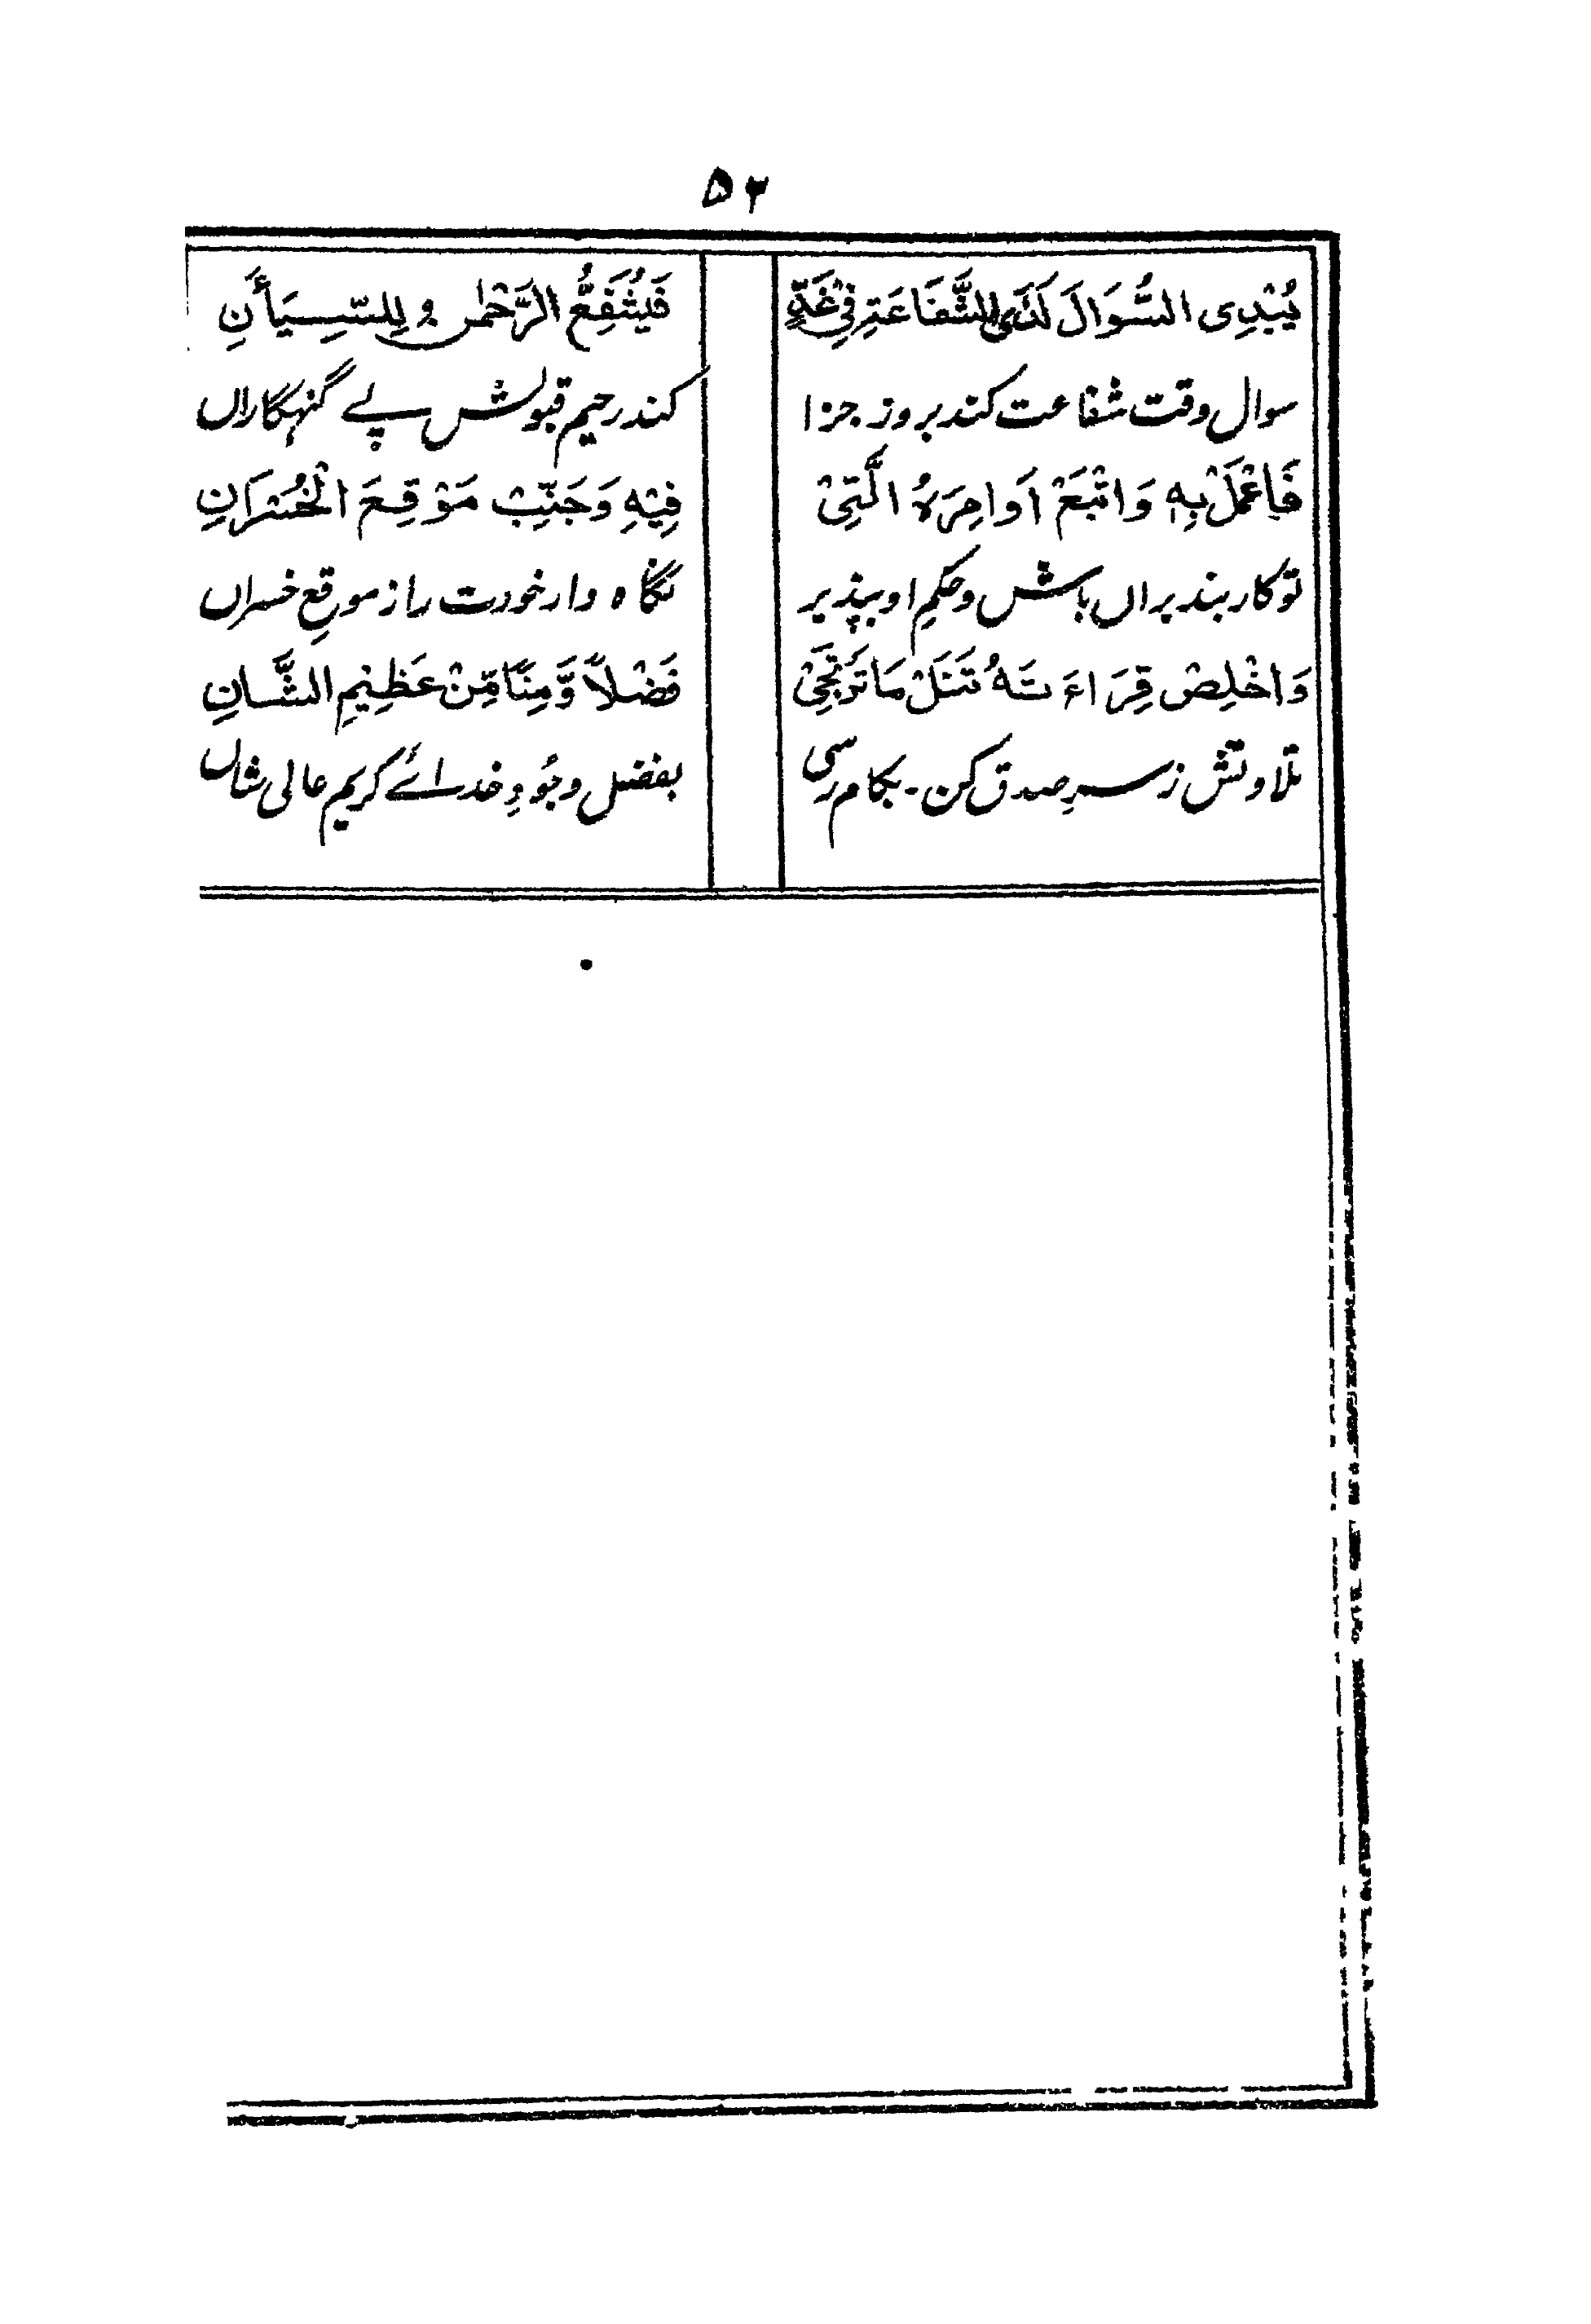 ۵۳
يُبْدِى السُّوَالَ لَدَى الشَّفَاعَةِ فِيْ غَدٍ فَيُشَفِعُّ الرَّحْمٰنُ لِلسِّيَأنِ
سوال وقت شفاعت کند بروز جزا کند رحیم قبولش پے گنہگاراں
فَاعْمَلْ بِهٖ وَاتْبَعْ اَوَامِرَهُ الَّتِىْ فِيْهِ وَجَنِّبْ مَوْقِعَ الْخُسْرَانِ
تو کاربند براں باش و حکمِ او بپذیر نگاہ دار خودت را ز موقعِ خسراں
وَاخْلِصْ قِرَاءَتَهُ تَنَلْ مَا تَرْتَجِىْ فَضْلاً وَّمِنًا مِّنْ عَظِيْمِ الشَّانِ
تلاوتش ز سرِ صدق کن - بکام رسی بفضل وجُودِ خدائے کریم عالی شاں